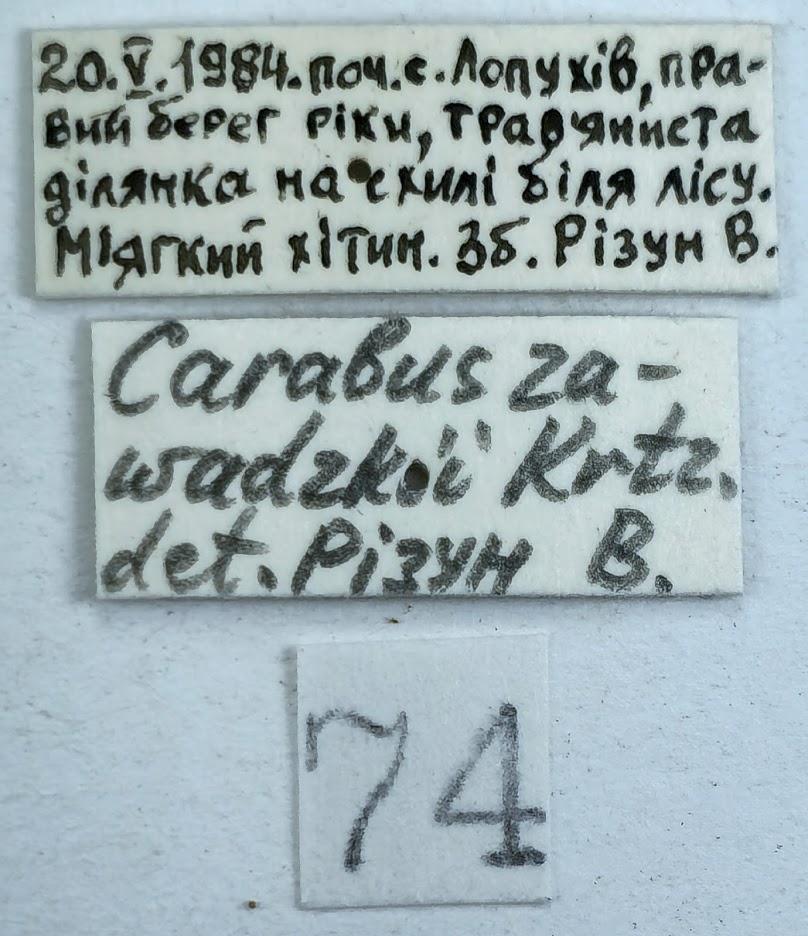 20.V.1984. поч. с. Лопухів, пра-
вий берег ріки, трав'яниста
ділянка на схилі біля лісу.
Мıягкий хітин. Зб. Різун В.
Carabus za-
wadzkii Krtz.
det. Різун В.
74